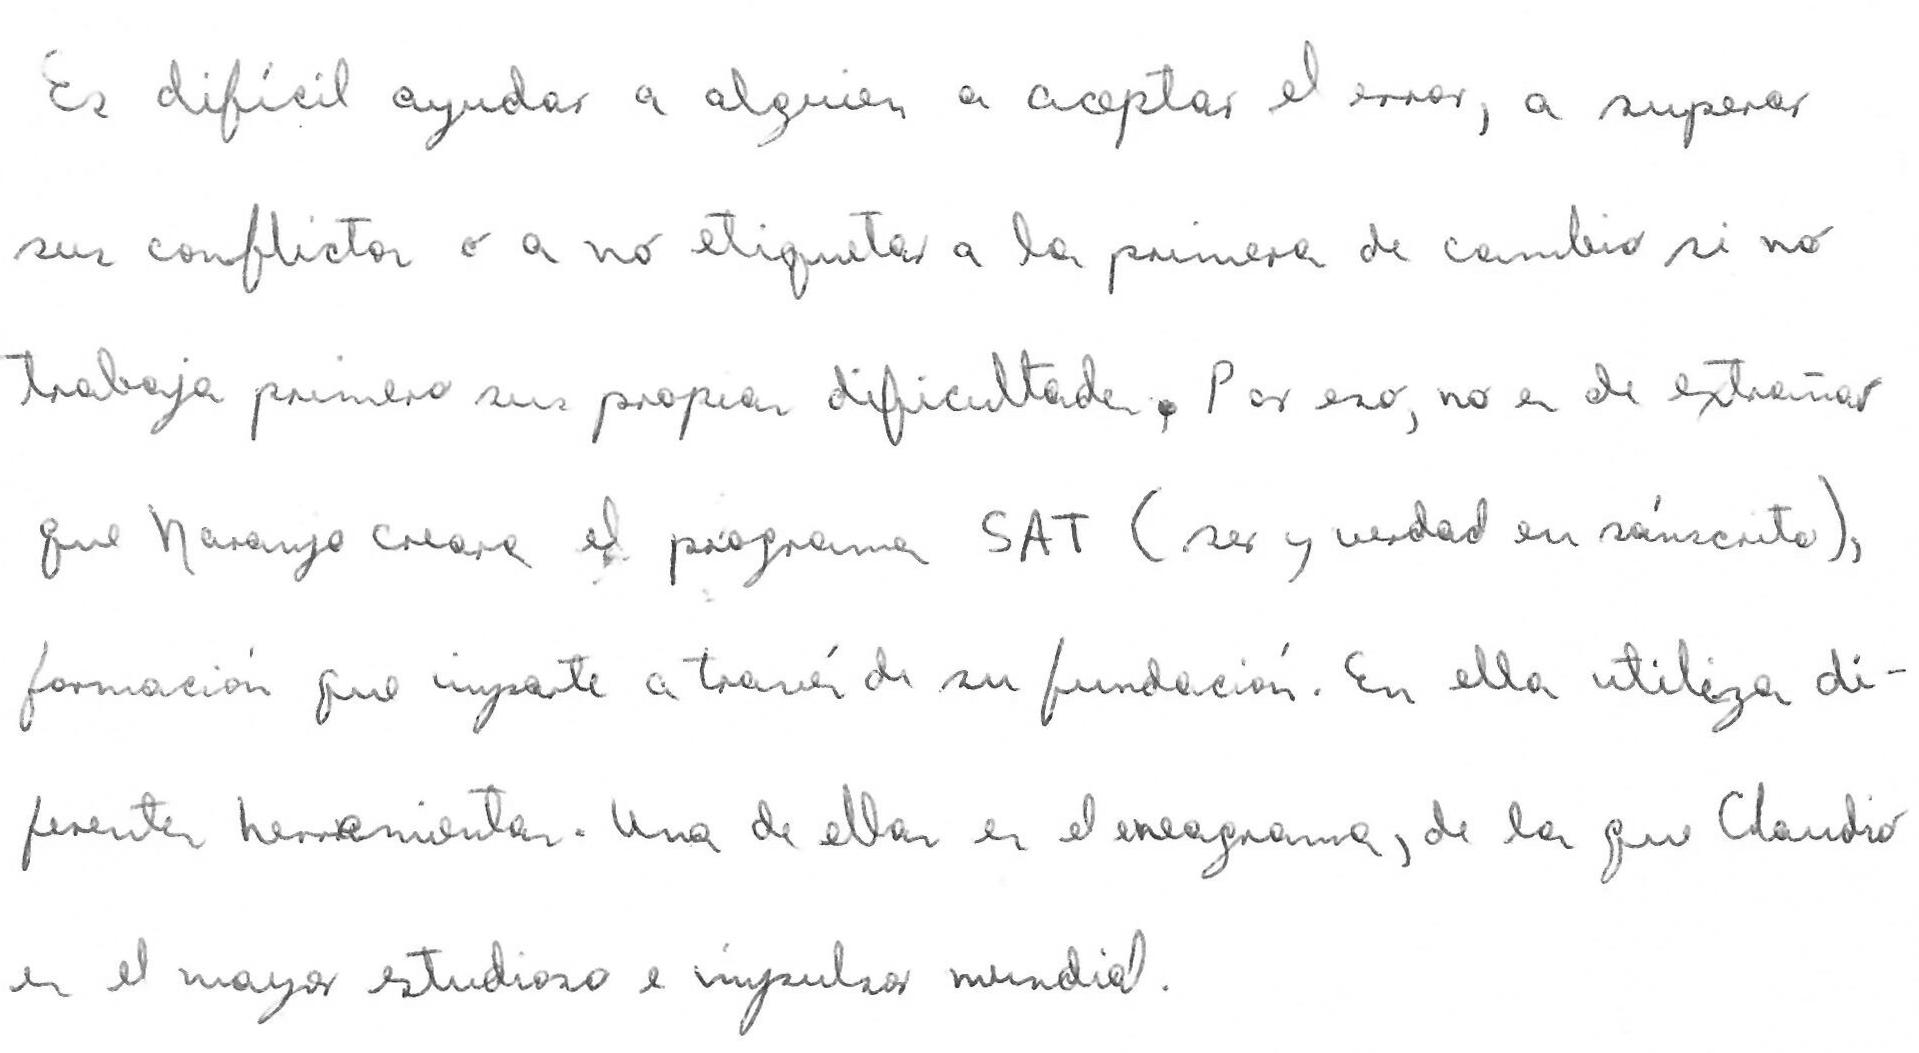 Es difícil ayudar a alguien a aceptar el error, a superar
sus conflictos o a no etiquetar a la primera de cambio si no
trabaja primero sus propias dificultades. Por eso, no es de extrañar
que Naranjo creara el programa SAT (ser y verdad en sánscrito),
formación que imparte a través de su fundación. En ella utiliza di-
ferentes herramientas. Una de ellas es el eneagrama, de la que Claudio
es el mayor estudioso e impulsor mundial.